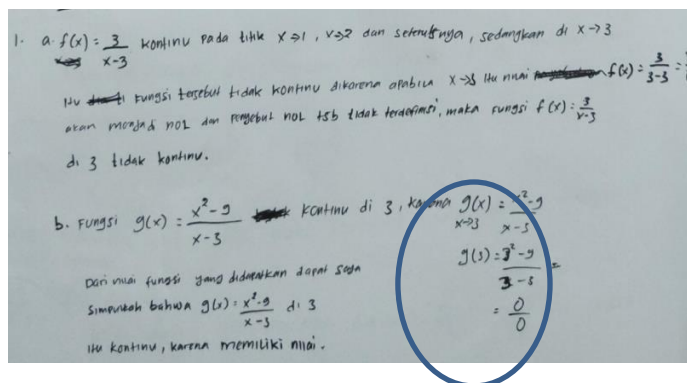 1. a. f(x) = 3/(x-3) kontinu pada titik x→1, x→2 dan seterusnya, sedangkan di x→3
itu fungsi tersebut tidak kontinu dikarena apabila x→3 itu nilai f(x) = 3/(3-3) =
akan menjadi nol dan penyebut nol tsb tidak terdefinisi, maka fungsi f(x) = 3/(x-3)
di 3 tidak kontinu.
b. Fungsi g(x) = (x²-9)/(x-3) kontinu di 3, karena g(x) = (x²-9)/(x-3)
x→3
g(3) = (3²-9)/(3-3) =
Dari nilai fungsi yang didapatkan dapat saya
simpulkah bahwa g(x) = (x²-9)/(x-3) di 3
= 0/0
itu kontinu, karena memiliki nilai.